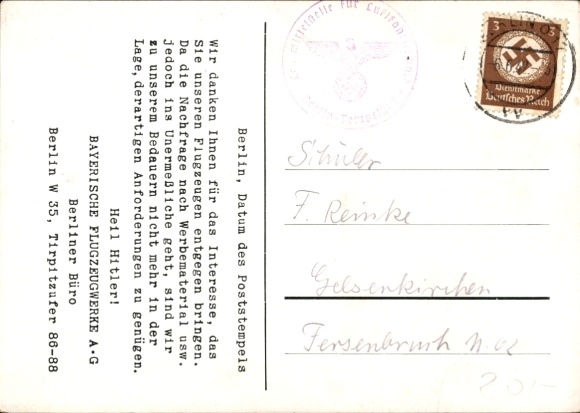 Berlin, Datum des Poststempels
Wir danken Ihnen für das Interesse, das
Sie unseren Flugzeugen entgegen bringen.
Da die Nachfrage nach Werbematerial usw.
jedoch ins Unermeßliche geht, sind wir
zu unserem Bedauern nicht mehr in der
Lage, derartigen Anforderungen zu genügen.
Heil Hitler!
BAYERISCHE FLUGZEUGWERKE A·G
Berliner Büro
Berlin W 35, Tirpitzufer 86-88
für
3 3
Dienstmarke
Deutsches Reich
Schüler
F. Reinke
Gelsenkirchen